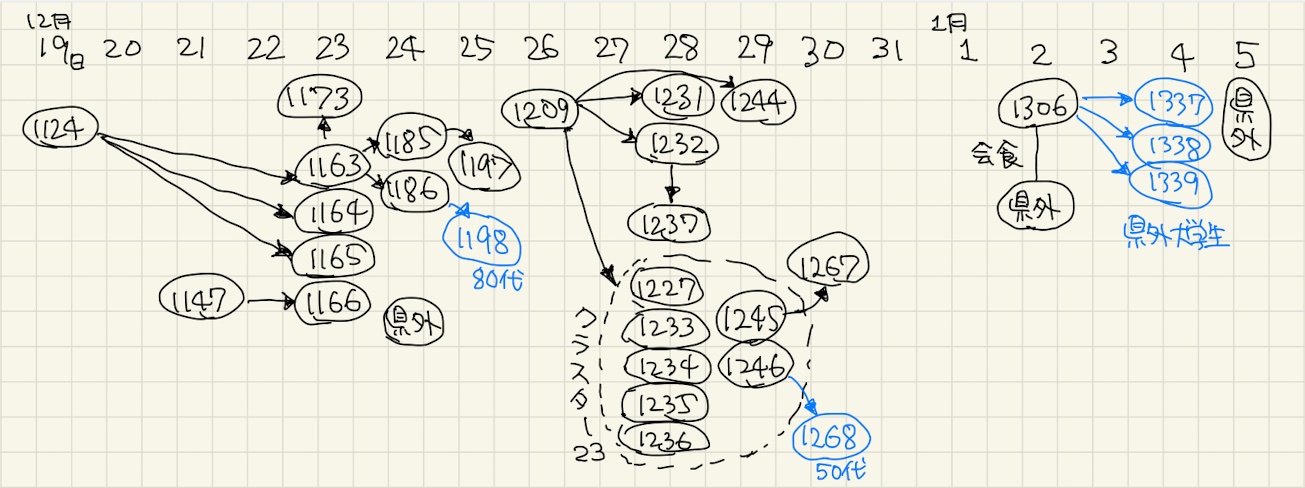 12月
1月
19日 20 21 22 23 24 25 26 27 28 29 30 31 1 2 3 4 5
1173
1124
1163
1164
1165
1147
1166
1185
1186
1197
1198
80代
県外
1209
1231
1244
1232
1237
1227
1233
1234
1235
1236
1245
1246
クラスター23
1267
1268
50代
1306
会食
県外
1337
1338
1339
県外大学生
県外